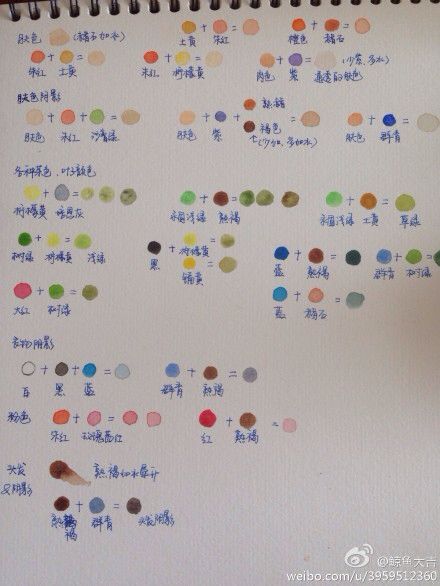 肤色 (赭石加水)
土黄 + 朱红 =
橙色 + 赭石 =
朱红 + 土黄 =
朱红 + 柠檬黄 =
肉色 + 紫 = (少紫,多水)
透透的肤色
肤色阴影
肤色 + 朱红 + 沙青绿 =
肤色 + 紫 + 熟赭
褐色
(少加,多加水)
肤色 + 群青 =
各种绿色,叶子颜色
柠檬黄 + 佩恩灰 =
永固浅绿 + 熟褐 =
永固浅绿 + 土黄 = 草绿
树绿 + 柠檬黄 = 浅绿
黑 + 柠檬黄 =
镉黄 =
蓝 + 熟褐 =
群青 + 树绿 =
大红 + 树绿 =
蓝 + 赭石 =
衣物阴影
白 + 黑 + 蓝 =
群青 + 熟褐 =
粉色
朱红 + 玫瑰茜红 =
红 + 熟褐 =
头发
&阴影
熟褐加水晕开
熟褐 + 群青 = 头发阴影
@鲸鱼大吉
weibo.com/u/3959512360